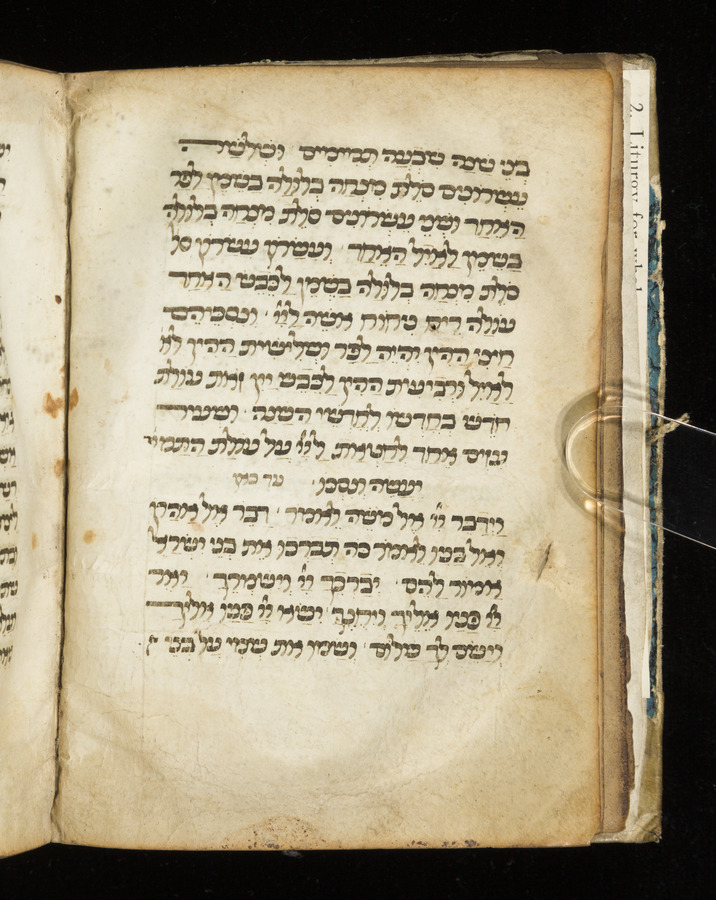 בני שנה שבעה תמימים ושלשה
עשרונים סלת מנחה בלולה בשמן לפר
האחד ושני עשרונים סלת מנחה בלולה
בשמן לאיל האחד ועשרון עשרון סל
סלת מנחה בלולה בשמן לכבש האחד
עולה ריח ניחוח אשה ליי ונסכיהם
חצי ההין יהיה לפר ושלישית ההין לא
לאיל ורביעית ההין לכבש יין זאת עולת
חדש בחדשו לחדשי השנה ושעיר
עזים אחד לחטאת ליי על עולת התמיד
יעשה ונסכו עד כאן
וידבר יי אל משה לאמור דבר אל אהרן
ואל בניו לאמור כה תברכו את בני ישראל
אמור להם יברכך יי וישמרך יאר
יי פניו אליך ויחנך ישא יי פניו אליך
וישם לך שלום ושמו את שמי על בני י
2. Liturgy for